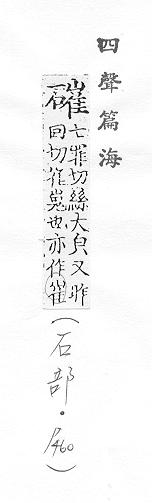 四聲篇海
七罪切絲大皃又昨
回切作嵬也亦作
(石部·P460)